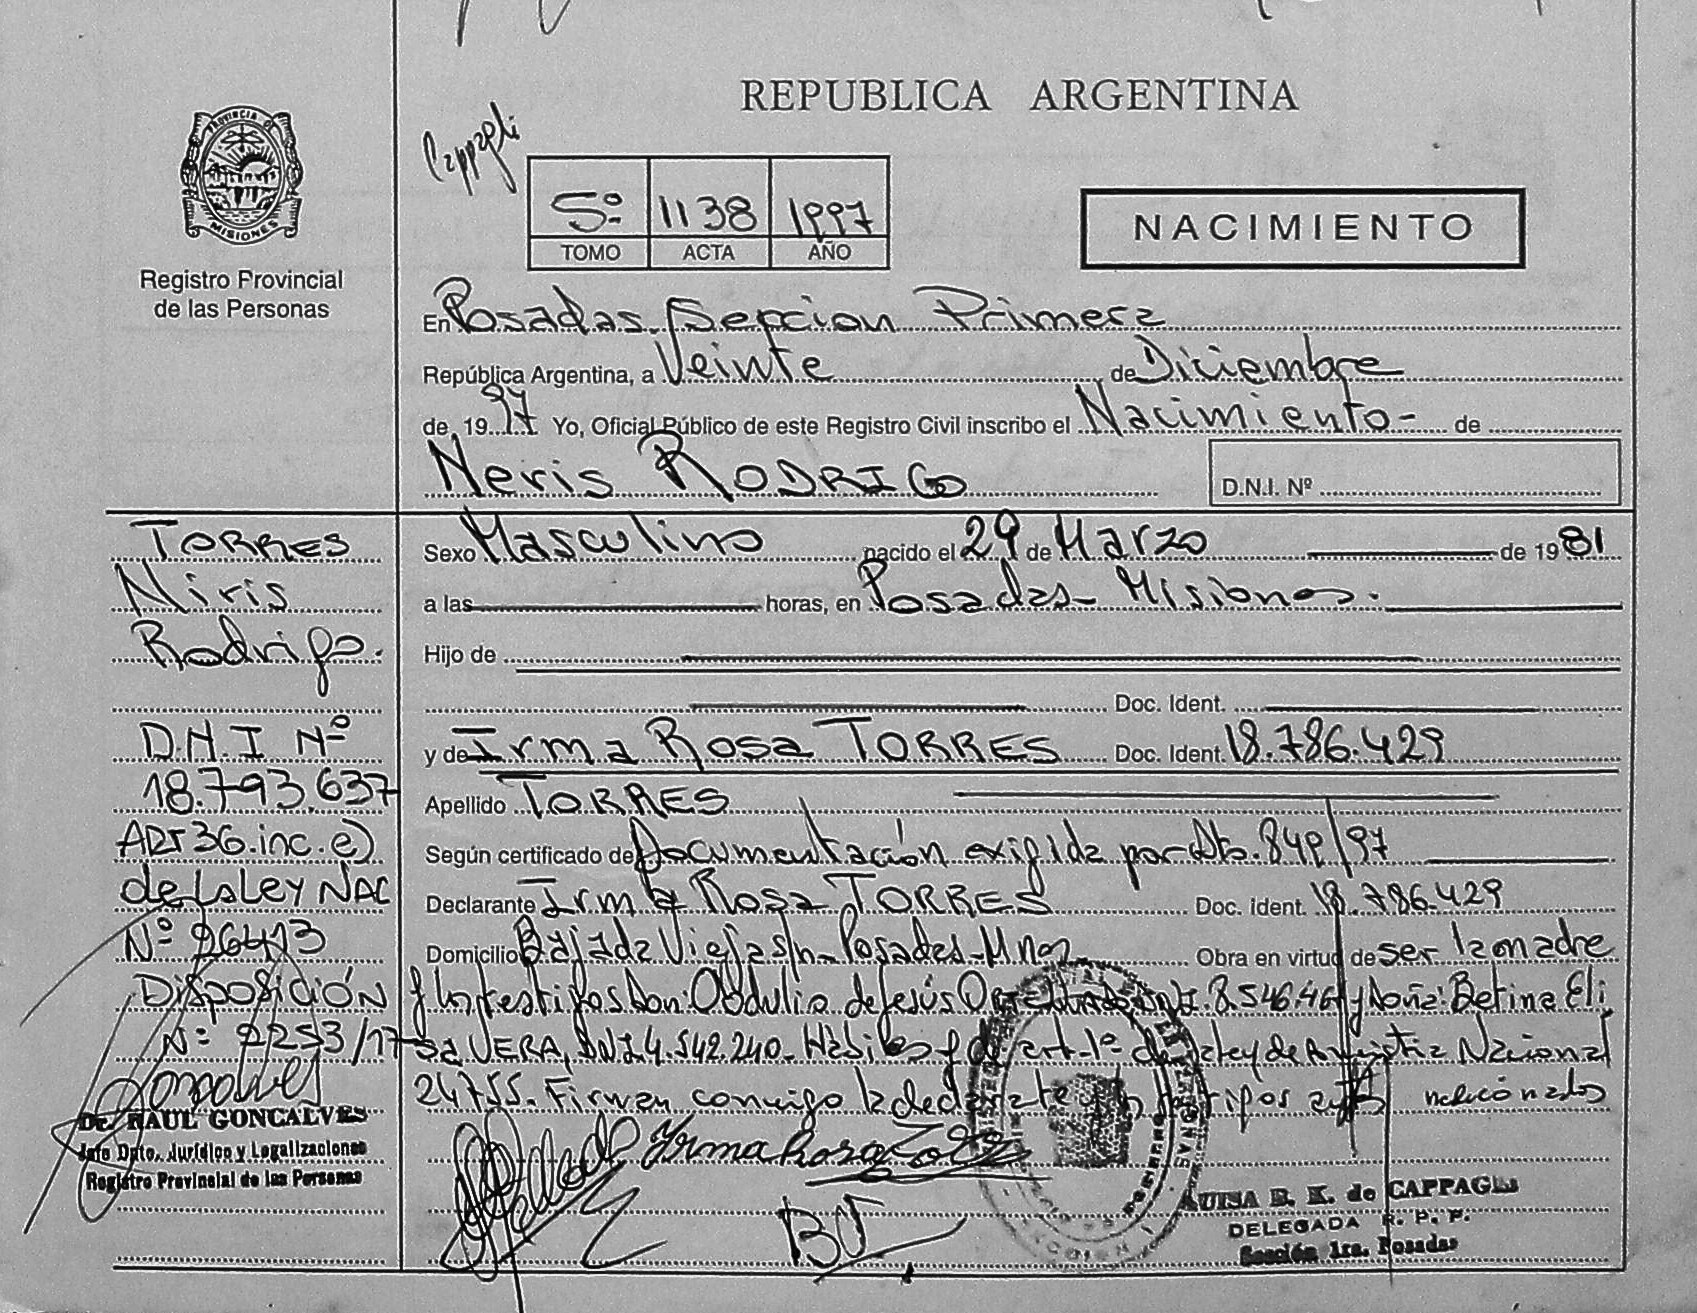 REPUBLICA ARGENTINA
PROVINCIA DE
MISIONES
Registro Provincial
de las Personas
Cappagli
5º 1138 1997
TOMO ACTA AÑO
NACIMIENTO
En Posadas Sepcion Primera
República Argentina, a Veinte de Diciembre
de 1997 Yo, Oficial Público de este Registro Civil inscribo el Nacimiento - de
Neris RODRIGO
D.N.I. Nº
Sexo Masculino nacido el 29 de Marzo de 1981
a las horas, en Posadas - Misiones.
Hijo de
Doc. Ident.
y de Irma Rosa TORRES Doc. Ident. 18.786.429
Apellido TORRES
Según certificado de Documentación exigida por Dto. 849/97
Declarante Irma Rosa TORRES Doc. Ident. 18.786.429
Domicilio Bajada Vieja s/n - Posadas - Mnes Obra en virtud de ser la madre
y los testigos Don: Obdulio de Jesús 8.546.46 y Doña: Betina Eli
sa VERA, DNI 4.542.240 - Hábiles y de art. 1º de la ley de Amnistia Nacional
24755. Firman conmigo la declarante y testigos antes mencionados
Irma Rosa Torres
BV
LUISA B. K. de CAPPAGLI
DELEGADA R. P. P.
Sección 1ra. Posadas
TORRES
Niris
Rodrigo.
D.N.I Nº
18.793.637
ART 36. inc. e)
de la ley NAC
Nº 26413
DISPOSICIÓN
Nº 2253/17
Dr. RAUL GONCALVES
Jefe Dpto. Jurídico y Legalizaciones
Registro Provincial de las Personas